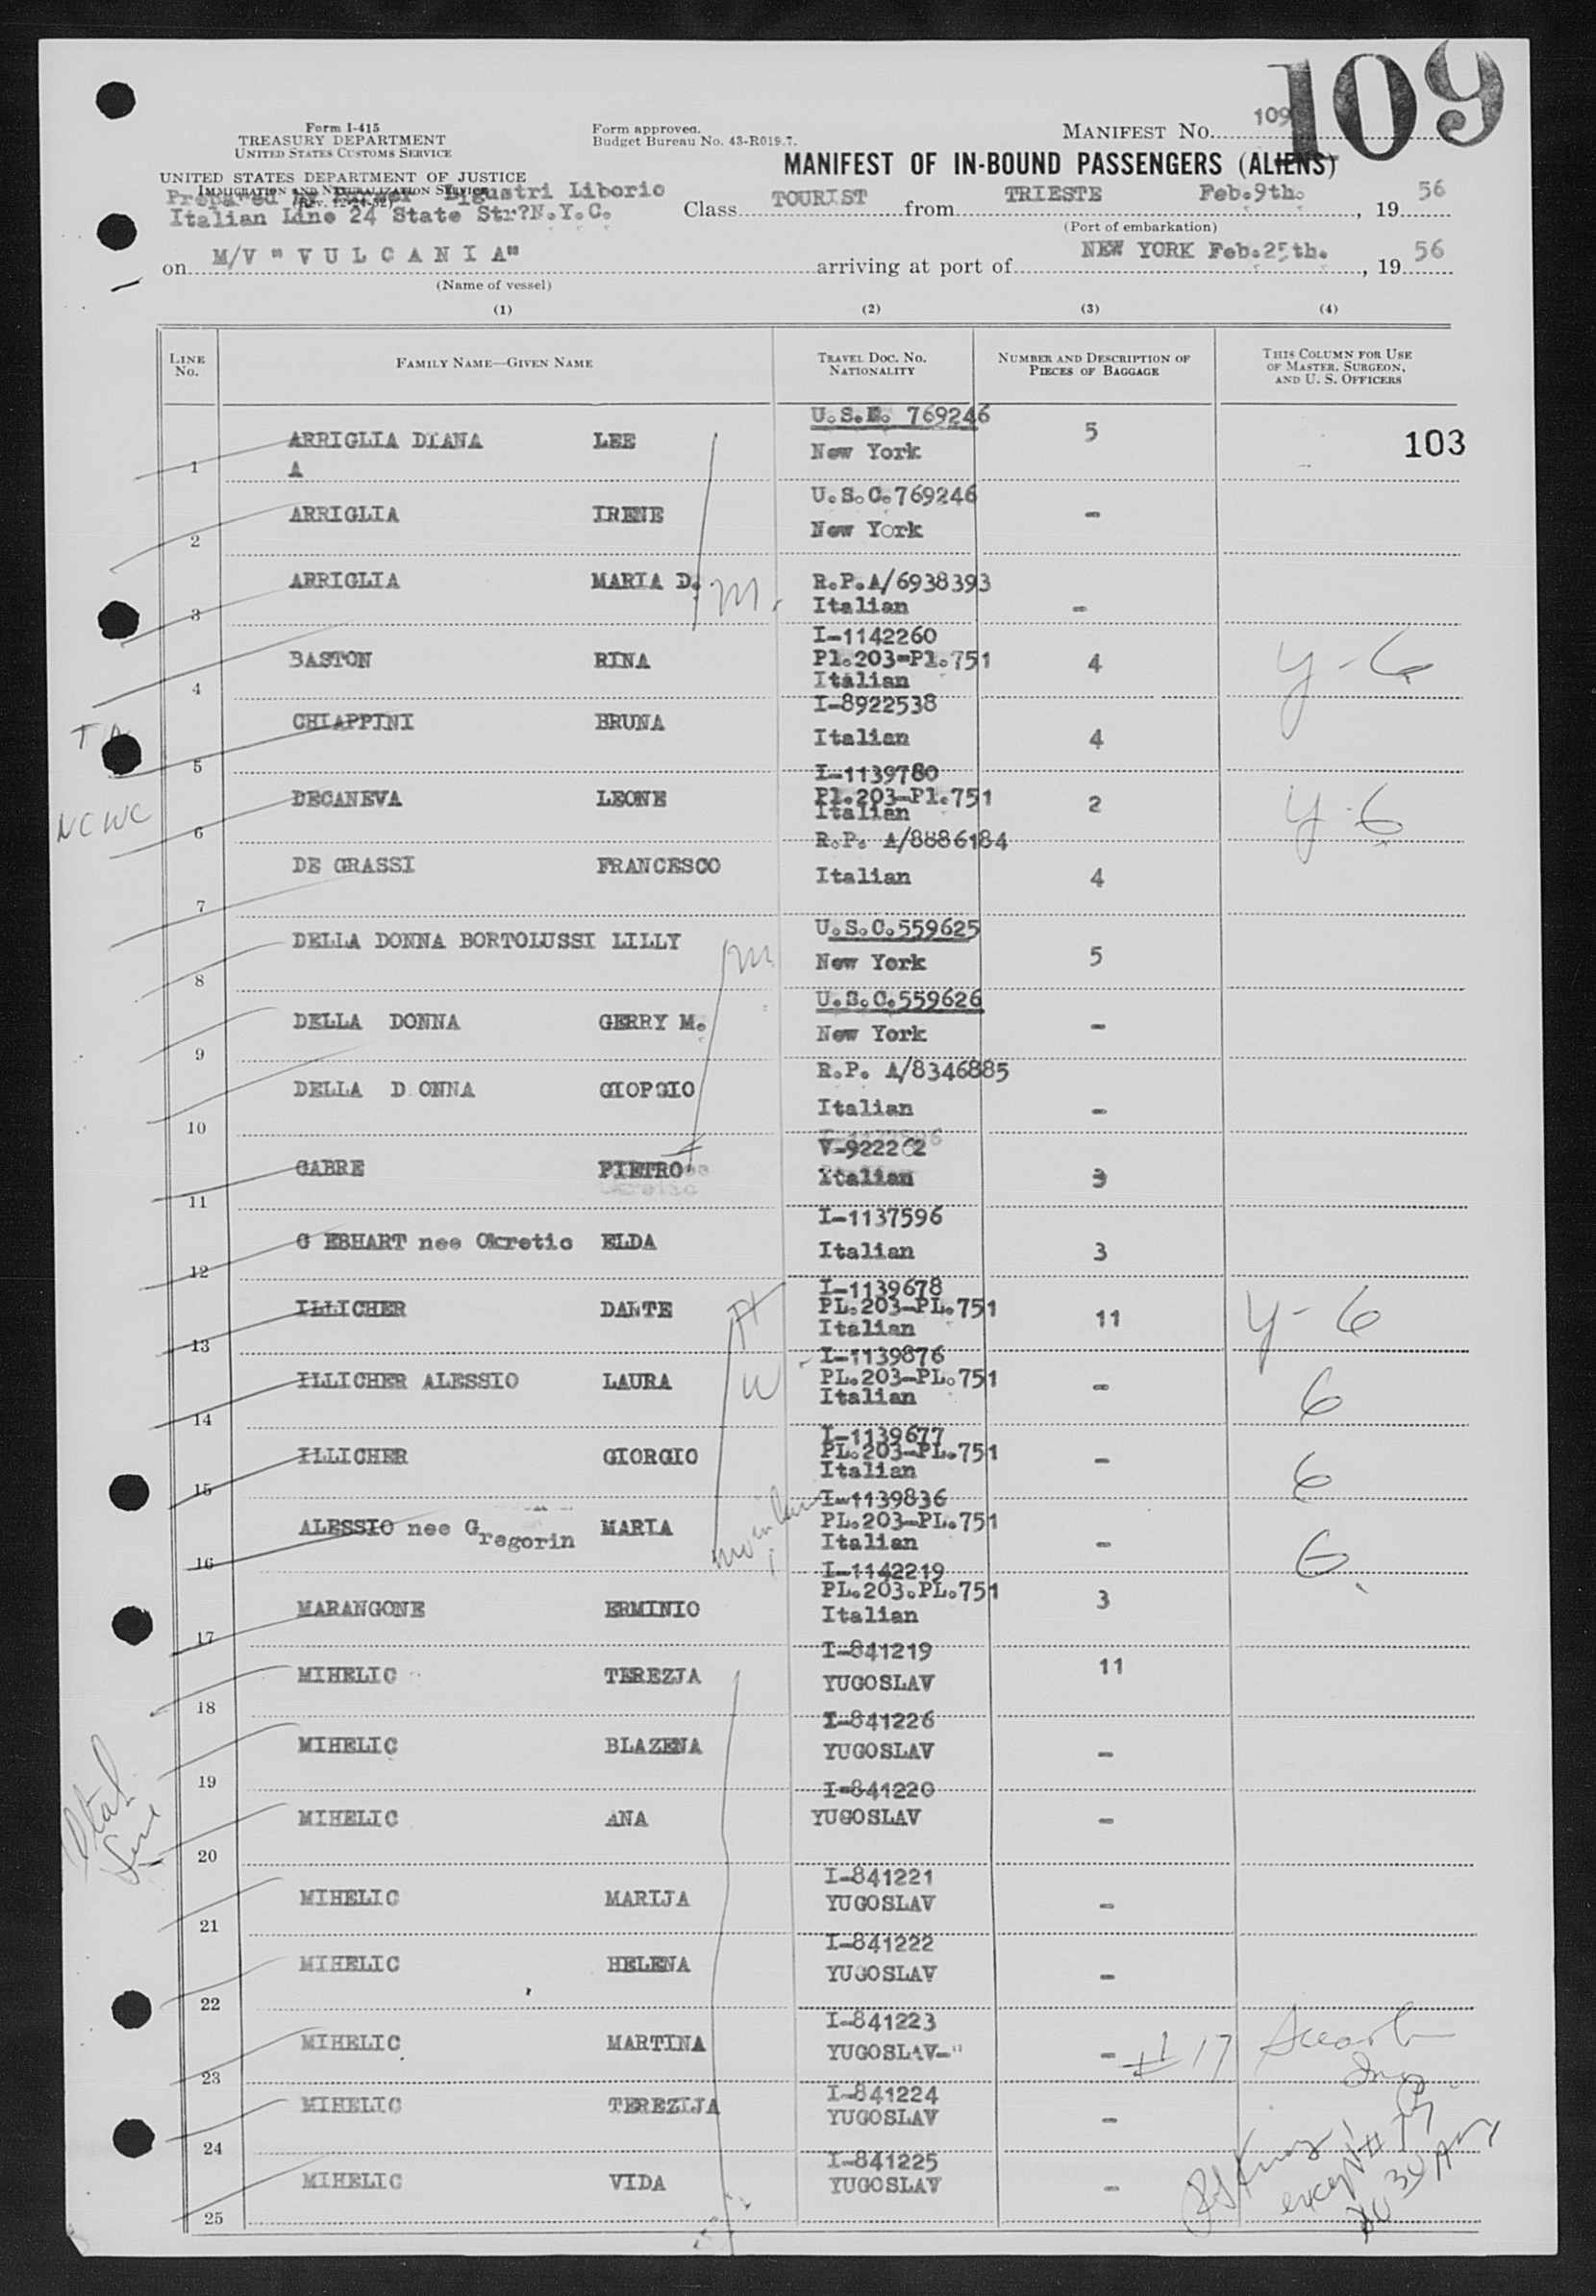 109
Form I-415
TREASURY DEPARTMENT
UNITED STATES CUSTOMS SERVICE
Form approved.
Budget Bureau No. 43-R019.7.
MANIFEST NO. 109
UNITED STATES DEPARTMENT OF JUSTICE
IMMIGRATION AND NATURALIZATION SERVICE
MANIFEST OF IN-BOUND PASSENGERS (ALIENS)
Prepared Ligustri Liborio
Italian Line 24 State Str?N.Y.C.
Class TOURIST from TRIESTE Feb.9th. , 19 56
(Port of embarkation)
on M/V " V U L C A N I A" arriving at port of NEW YORK Feb.25th. , 19 56
(Name of vessel)
(1) (2) (3) (4)
LINE NO. FAMILY NAME—GIVEN NAME TRAVEL DOC. NO. NATIONALITY NUMBER AND DESCRIPTION OF PIECES OF BAGGAGE THIS COLUMN FOR USE OF MASTER, SURGEON, AND U. S. OFFICERS
U.S. 769246
1 ARRIGLIA DIANA LEE 5 103
A New York
U.S.C.769246
2 ARRIGLIA IRENE -
New York
3 ARRIGLIA MARIA D. m. R.P.A/6938393
Italian -
I-1142260
4 BASTON RINA Pl.203-Pl.751 4 y-6
Italian
I-8922538
5 CHIAPPINI BRUNA Italian 4
I-1139780
6 DECANEVA LEONE Pl.203-Pl.751 2 y-6
NCWC Italian
R.P. A/8886184
7 DE GRASSI FRANCESCO Italian 4
U.S.C.559625
8 DELLA DONNA BORTOLUSSI LILLY m New York 5
U.S.C.559626
9 DELLA DONNA GERRY M. New York -
R.P. A/8346885
10 DELLA D ONNA GIORGIO Italian -
V-922262
11 GABRE PIETRO Italian 3
I-1137596
12 G EBHART nee Okretic ELDA Italian 3
I-1139678
13 ILLICHER DANTE PL.203-PL.751 11 y-6
Italian
I-1139876
14 ILLICHER ALESSIO LAURA W PL.203-PL.751 - 6
Italian
I-1139677
15 ILLICHER GIORGIO PL.203-PL.751 - 6
Italian
I-1139836
16 ALESSIO nee Gregorin MARIA PL.203-PL.751 - 6
Italian
I-1142219
17 MARANGONE ERMINIO PL.203.PL.751 3
Italian
I-841219
18 MIHELIC TEREZIA YUGOSLAV 11
I-841226
19 MIHELIC BLAZENA YUGOSLAV -
I-841220
20 MIHELIC ANA YUGOSLAV -
I-841221
21 MIHELIC MARIJA YUGOSLAV -
I-841222
22 MIHELIC HELENA YUGOSLAV -
I-841223
23 MIHELIC MARTINA YUGOSLAV-" - # 17
I-841224
24 MIHELIC TEREZIJA YUGOSLAV -
I-841225
25 MIHELIC VIDA YUGOSLAV -
except #